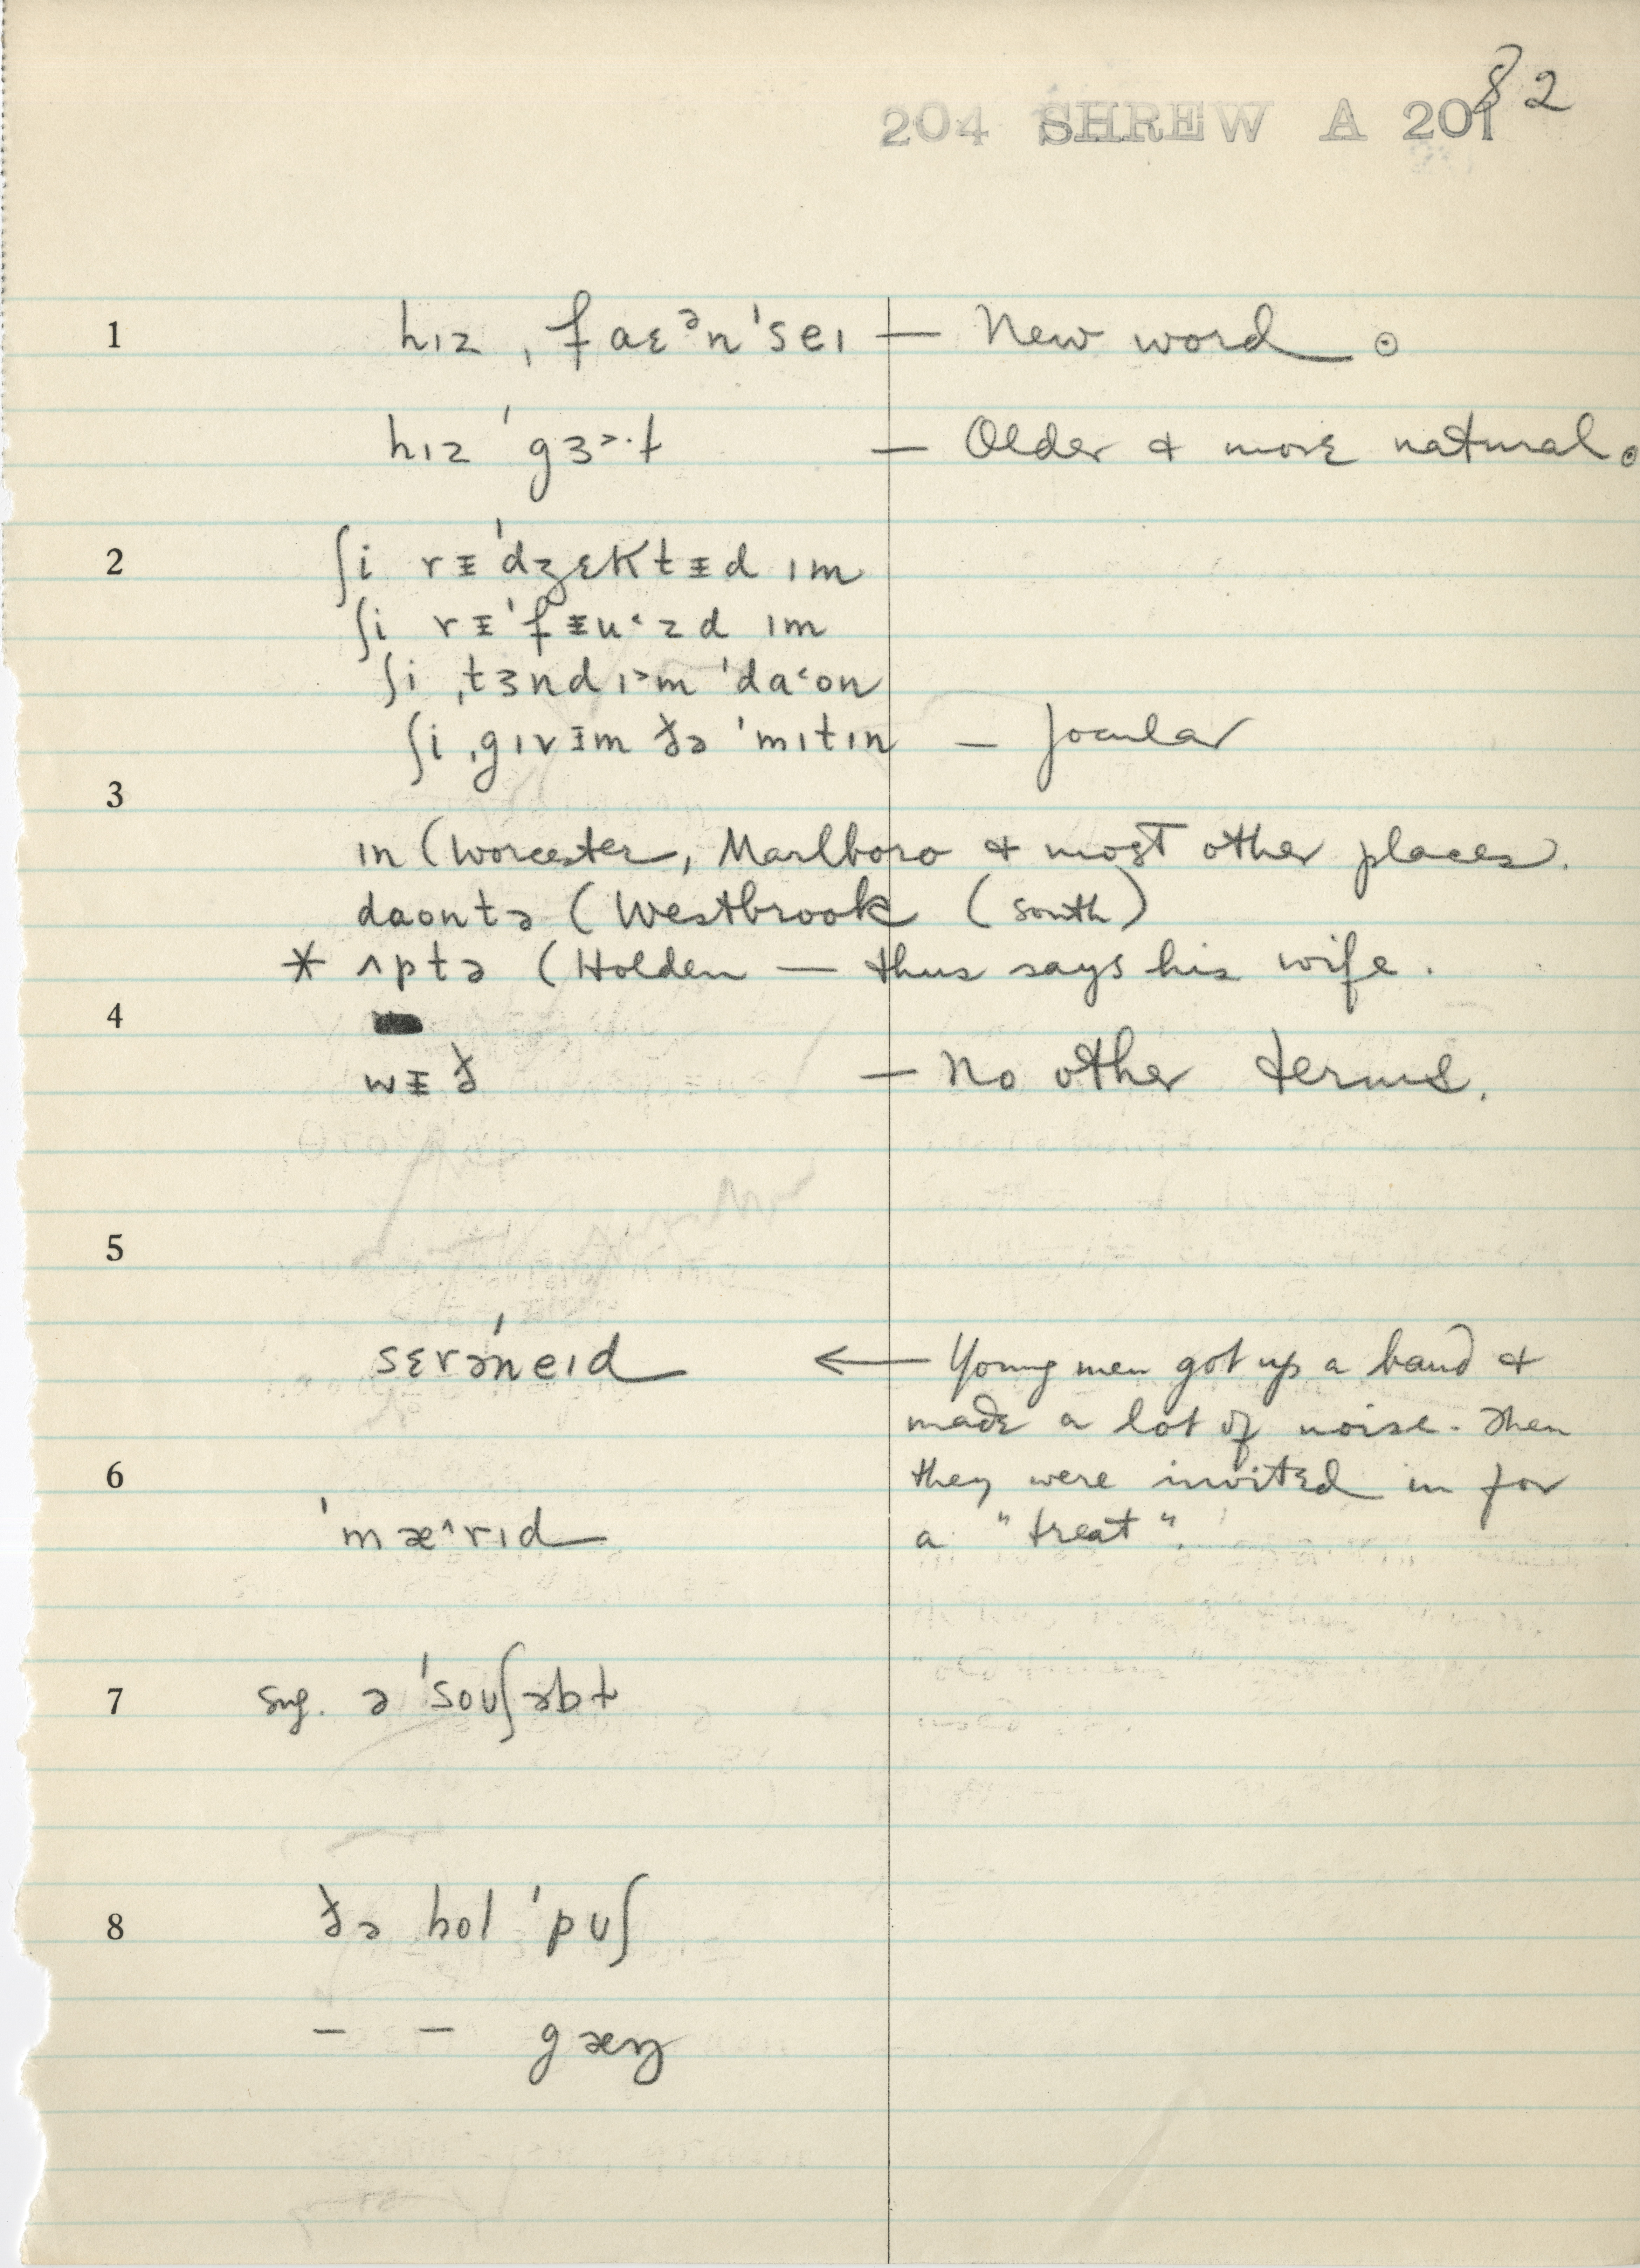 82
204 SHREW A 201
1 hɪz ˌfaɛᵊnˈseɪ — New word ⊙
hɪz ˈgɜ˃·ɫ — Older & more natural ⊙
2 ʃi rᵻˈdʒɛktᵻd ɪm
ʃi rᵻˈfᵻu˂zd ɪm
ʃi ˌtɜnd ɪ˃m ˈda˂on
ʃi ˌgɪvᵻm ðə ˈmɪtɪn — Jocular
3
ɪn (Worcester, Marlboro & most other places.
daontə (Westbrook (south)
* ʌptə (Holden — thus says his wife.
4
wᵻð — No other terms.
5
sɛrəˈneɪd ← Young men got up a band &
made a lot of noise. Then
6 they were invited in for
ˈmæ˄rɪd a "treat".
7 sug. ə ˈsoʊʃəbɫ
8 ðə hol ˈpʊʃ
– – gæŋ